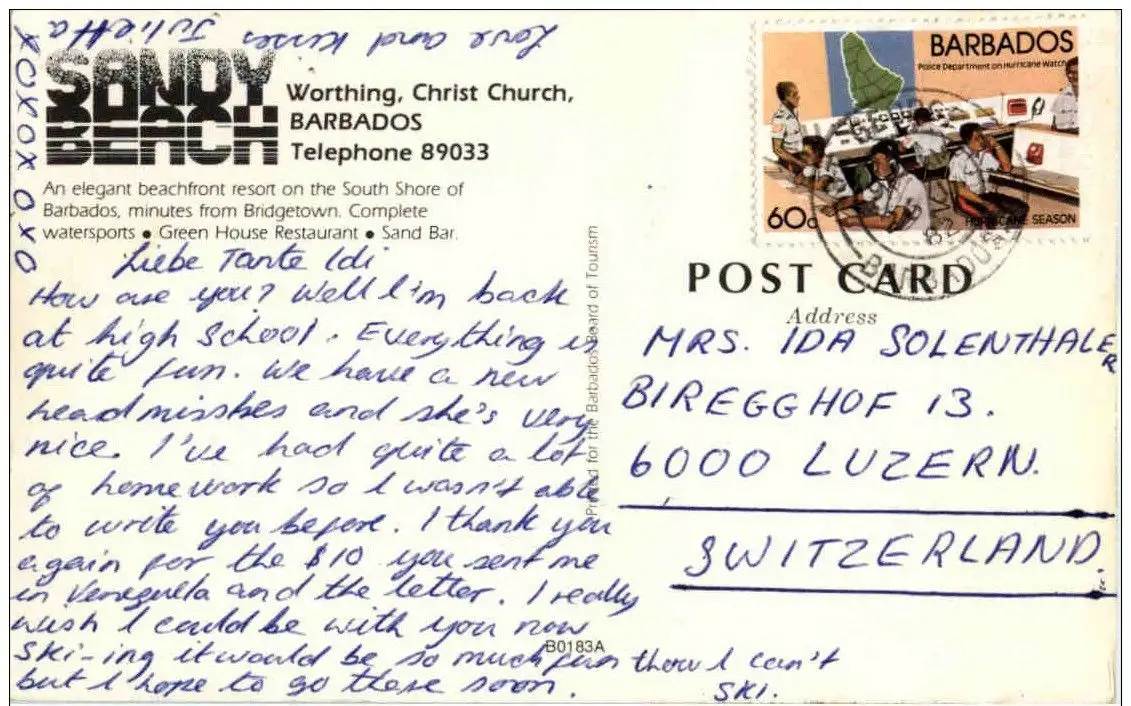 SANDY
BEACH
Worthing, Christ Church,
BARBADOS
Telephone 89033
An elegant beachfront resort on the South Shore of
Barbados, minutes from Bridgetown. Complete
watersports • Green House Restaurant • Sand Bar.
Liebe Tante Idi
How are you? Well I'm back
at high School. Everything is
quite fun. We have a new
headmissbes and she's very
nice. I've had quite a lot
of homework so I wasn't able
to write you before. I thank you
again for the $10 you sent me
in Venezulla and the letter. I really
wish I could be with you now
Ski-ing it would be so much fun thow I can't
SKI.
but I hope to go these soon.
Love and kisses Julietta
XOXOXOXO
Printed for the Barbados Board of Tourism
B0183A
BARBADOS
Police Department on Hurricane Watch
60c
HURRICANE SEASON
82
BARBADOS
POST CARD
Address
MRS. IDA SOLENTHALER
BIREGGHOF 13.
6000 LUZERN.
SWITZERLAND.